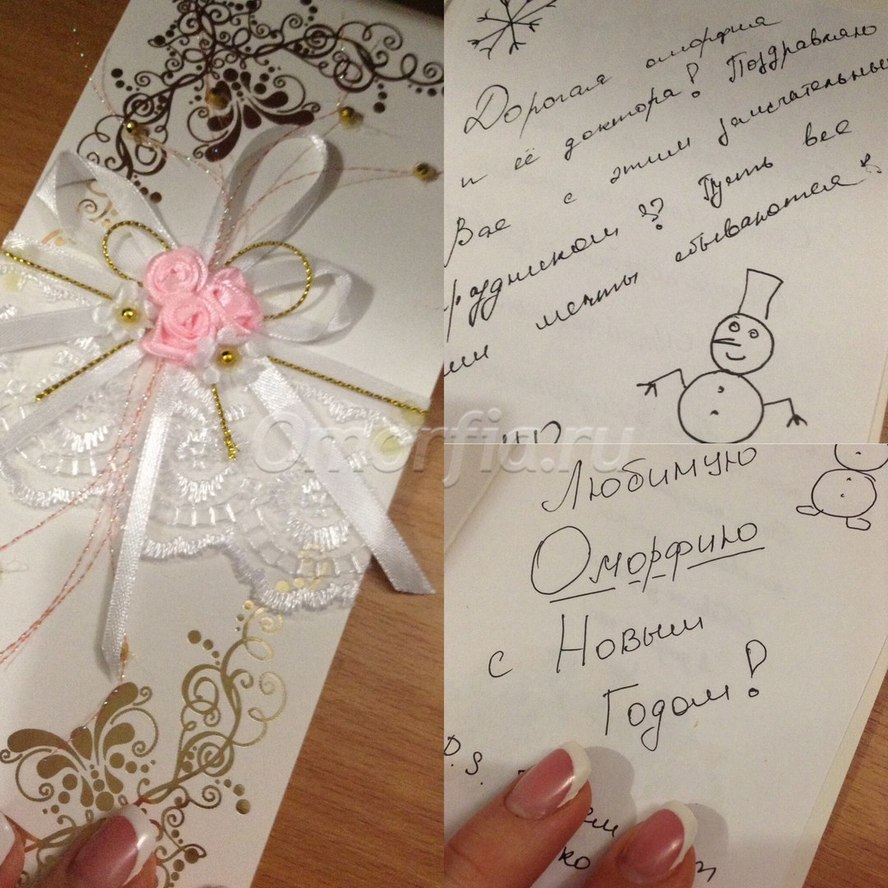 Дорогая оморфия
и её доктора! Поздравляю
Вас с этим замечательным
праздником! Пусть все
мечты сбываются
Omorfia.ru
Любимую
Оморфию
с Новым
Годом!
P.S.